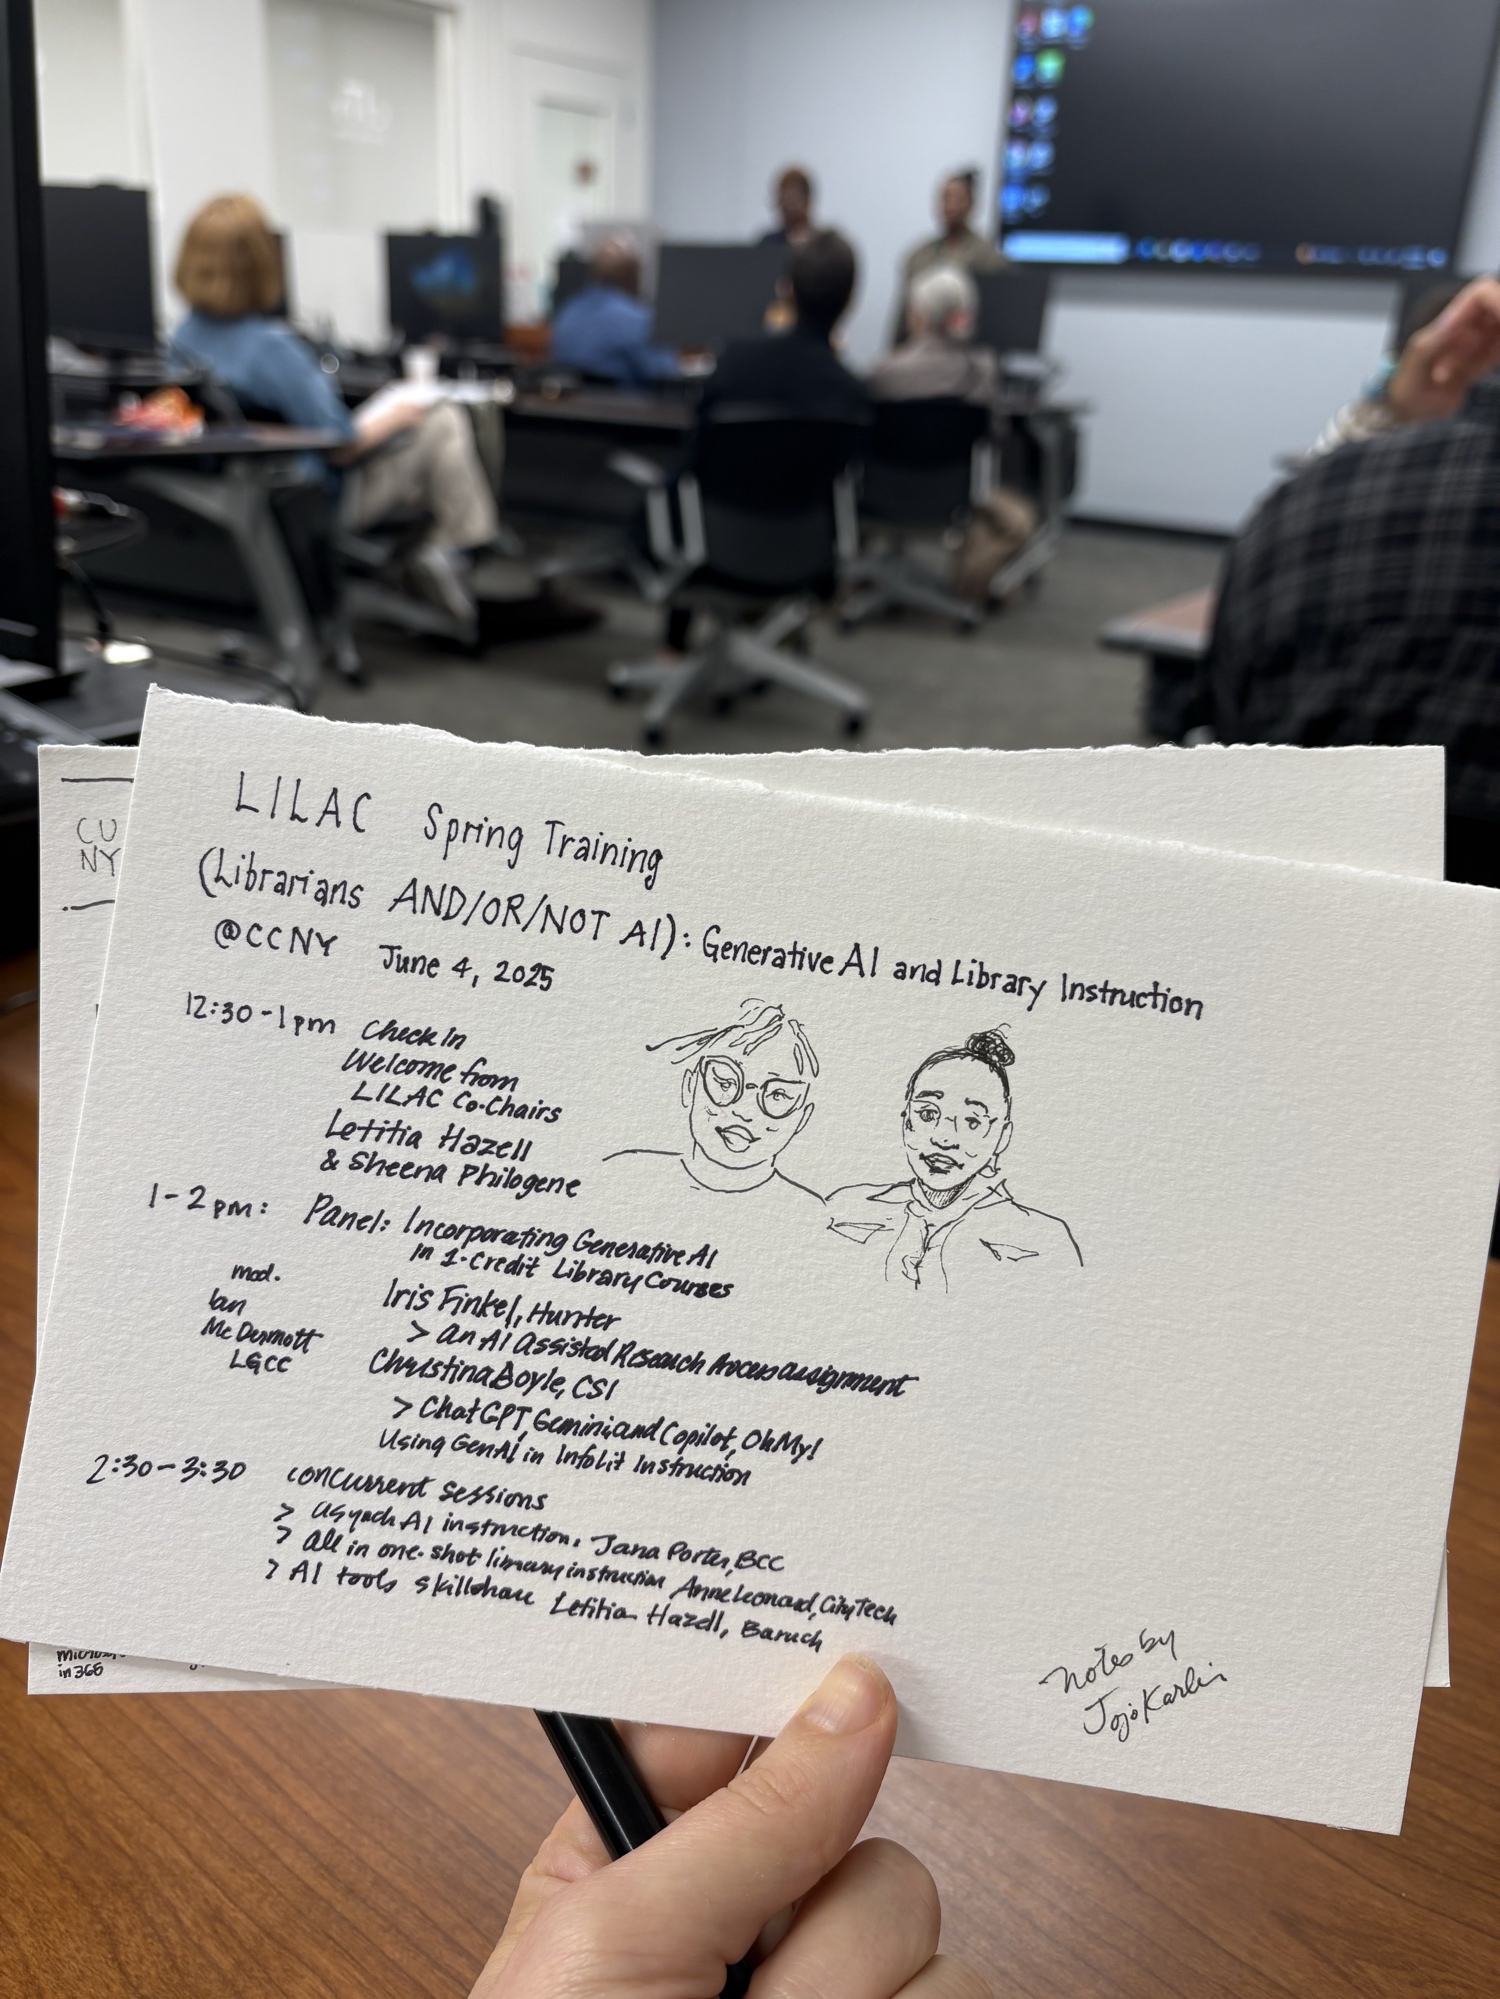 LILAC Spring Training
(Librarians AND/OR/NOT AI): Generative AI and Library Instruction
@CCNY June 4, 2025
12:30-1pm Check in
Welcome from
LILAC Co-Chairs
Letitia Hazell
& Sheena Philogene
1-2pm: Panel: Incorporating Generative AI
in 1-credit Library Courses
mod.
Ian
McDermott
LGCC
Iris Finkel, Hunter
> an AI Assisted Research Process assignment
Christina Boyle, CSI
> ChatGPT, Gemini, and Copilot, Oh My!
Using GenAI in Infolit Instruction
2:30-3:30 concurrent sessions
> asynch AI instruction, Jana Porter, BCC
> all in one-shot library instruction Anne Leonard, CityTech
> AI tools skillshare Letitia Hazell, Baruch
notes by
Jojo Karlin
CU
NY
in 365